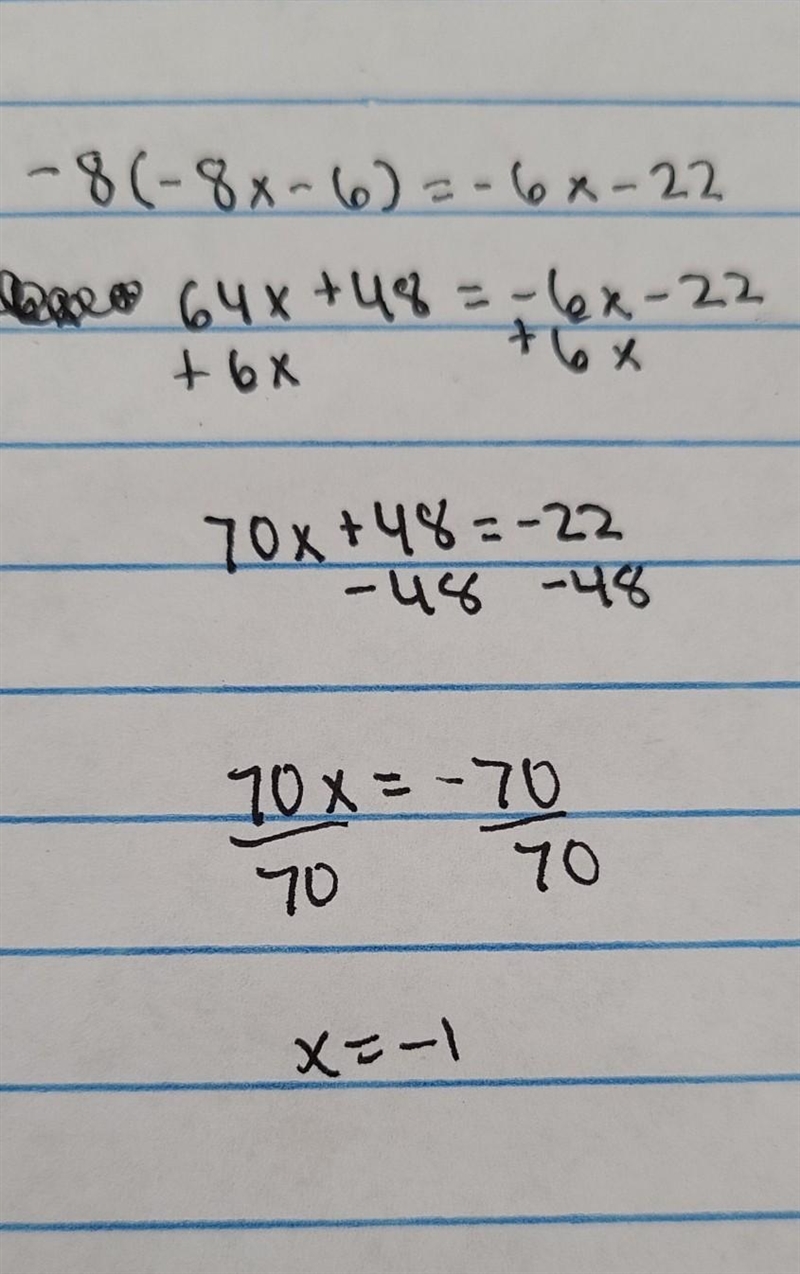 -8(-8x-6)=-6x-22
64x+48=-6x-22
+6x +6x
70x+48=-22
-48 -48
70x=-70
70 70
x=-1